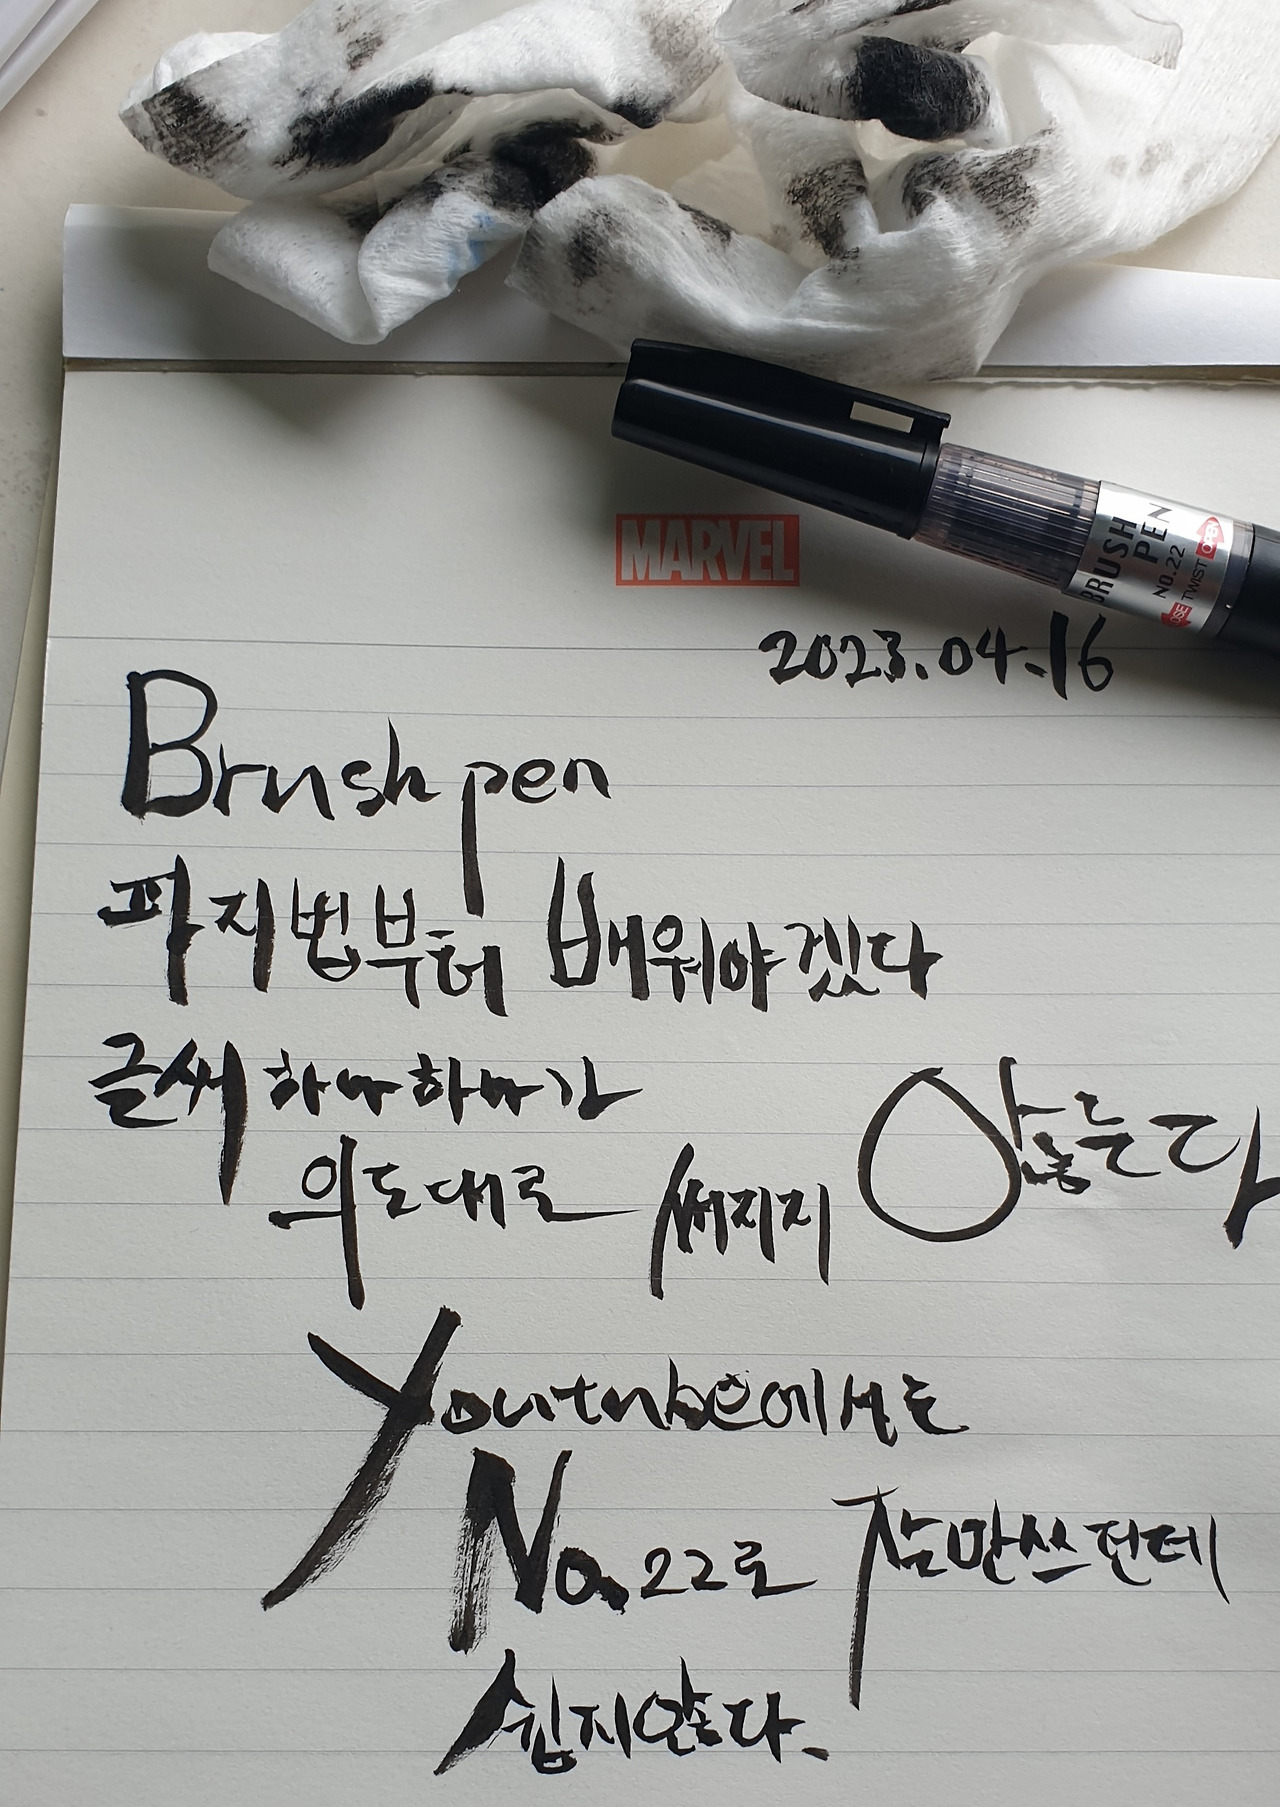 BRUSH PEN
NO.22
TWIST OPEN
MARVEL
2023.04.16
Brush pen
파지법부터 배워야겠다
글씨 하나하나가
의도대로 써지지 않는다
Youtube에서는
No.22로 잘만쓰던데
쉽지않다.